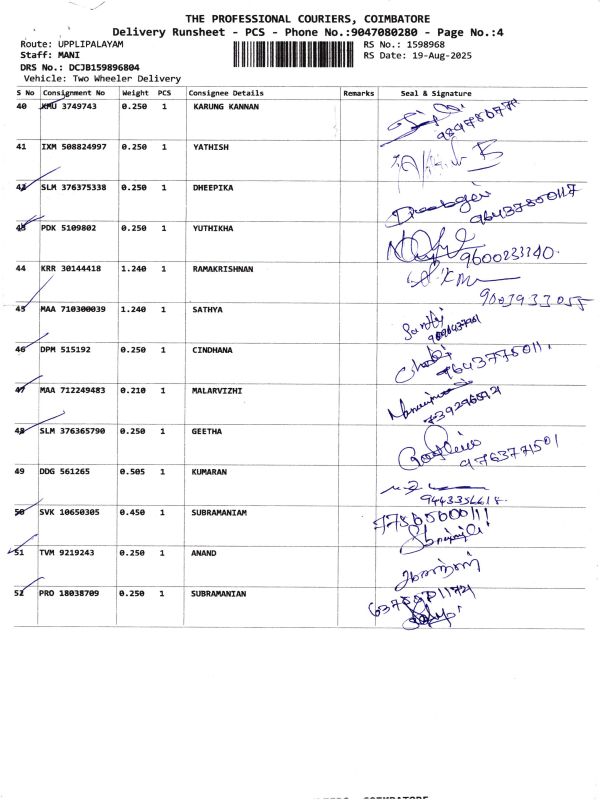 THE PROFESSIONAL COURIERS, COIMBATORE
Delivery Runsheet - PCS - Phone No.:9047080280 - Page No.:4
Route: UPPLIPALAYAM
RS No.: 1598968
Staff: MANI
RS Date: 19-Aug-2025
DRS No.: DCJB159896804
Vehicle: Two Wheeler Delivery
S No Consignment No Weight PCS Consignee Details Remarks Seal & Signature
40 KMU 3749743 0.250 1 KARUNG KANNAN
41 IXM 508824997 0.250 1 YATHISH
42 SLM 376375338 0.250 1 DHEEPIKA
43 PDK 5109802 0.250 1 YUTHIKHA
9600233340
44 KRR 30144418 1.240 1 RAMAKRISHNAN
9003933055
45 MAA 710300039 1.240 1 SATHYA
46 DPM 515192 0.250 1 CINDHANA
47 MAA 712249483 0.210 1 MALARVIZHI
48 SLM 376365790 0.250 1 GEETHA
9763771501
49 DDG 561265 0.505 1 KUMARAN
50 SVK 10650305 0.450 1 SUBRAMANIAM
51 TVM 9219243 0.250 1 ANAND
52 PRO 18038709 0.250 1 SUBRAMANIAN